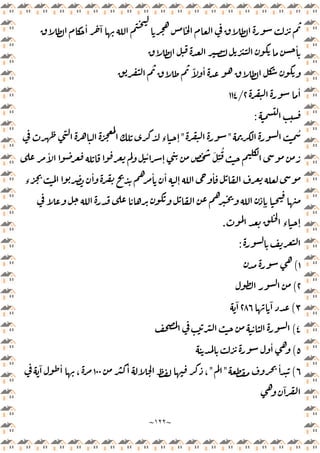 ثم نزلت سورة الطلاق في العام الخامس هجريا ليختم الله بها آخر أحكام الطلاق
بأحسن ما يكون التنزيل لتصير العدة قبل الطلاق
ويكون شكل الطلاق هو عدة أولاً ثم طلاق ثم التفريق
أما سورة البقرة ٢/١١٤
سبب التسمية:
سُميت السورة الكريمة "سورة البقرة" إحياء لذكرى تلك المعجزة الباهرة التي ظهرت في
زمن موسى الكليم حيث قُتل شخص من بني إسرائيل ولم يعرفوا قاتله فعرضوا الأمر على
موسى لعله يعرف القاتل فأوحى الله إليه أن يأمرهم بذبح بقرة وأن يضربوا الميت بجزء
منها فيحيا بإذن الله ويخبرهم عن القاتل وتكون برهانا على قدرة الله جل وعلا في
إحياء الخلق بعد الموت.
التعريف بالسورة:
١) هي سورة مدن
٢) من السور الطول
٣) عدد آياتها ٢٨٦ آية
٤) السورة الثانية من حيث الترتيب في المصحف
٥) وهي أول سورة نزلت بالمدينة
٦) تبدأ بحروف مقطعة "الم"، ذكر فيها لفظ الجلالة أكثر من ١٠٠ مرة، بها أطول آية في
القرآن وهي
~١٢٢~